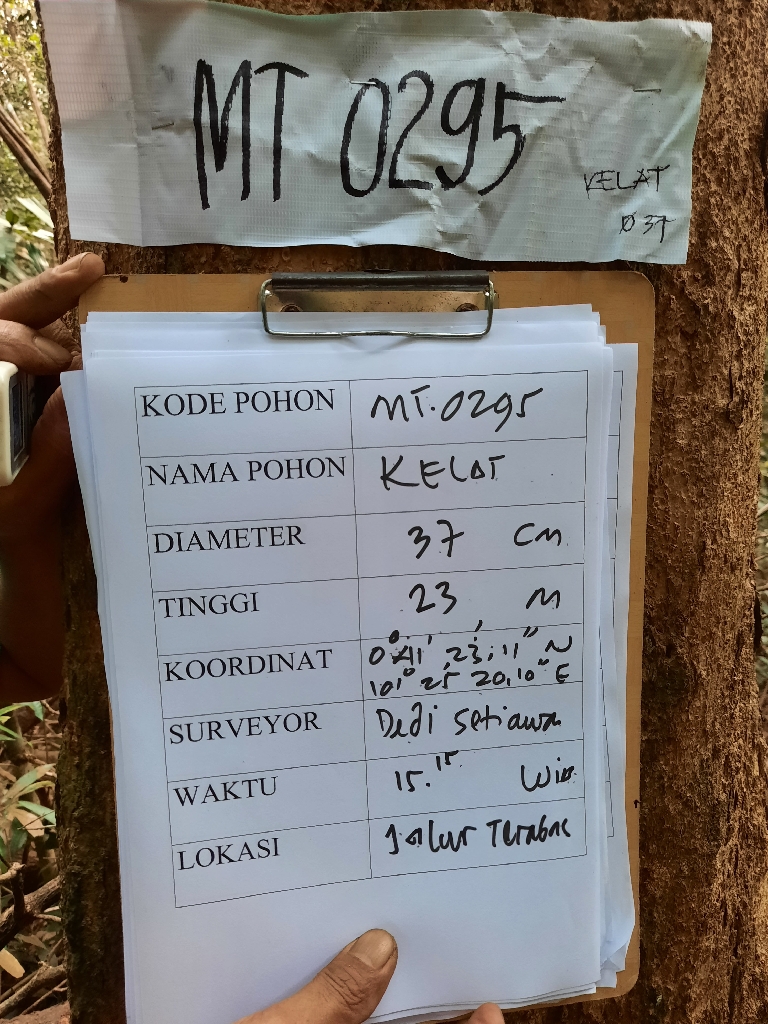 MT 0295
KELAT
Ø 37
KODE POHON MT.0295
NAMA POHON KELAT
DIAMETER 37 CM
TINGGI 23 M
KOORDINAT 0° 41' 23,11" N
101° 25' 20,10" E
SURVEYOR Dedi Setiawan
WAKTU 15.15 Wib
LOKASI Jalur Terabas